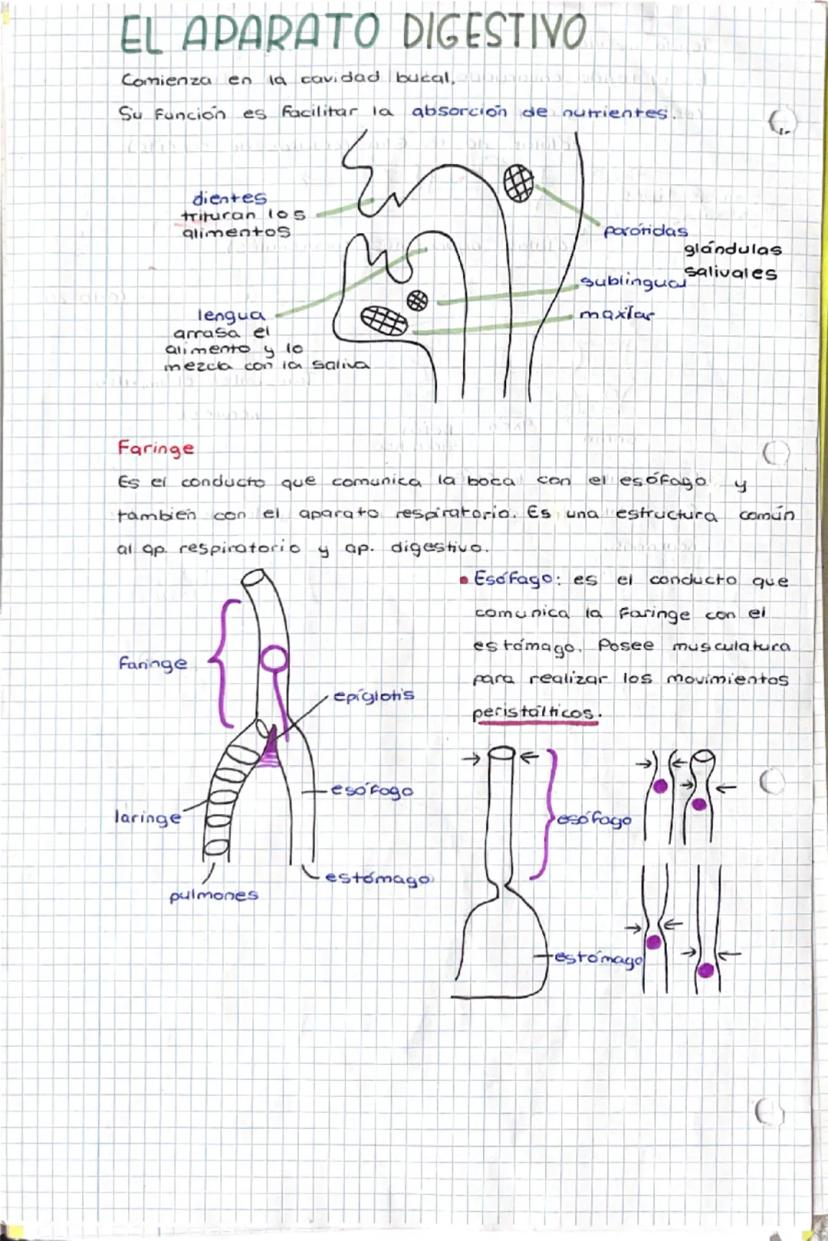 EL APARATO DIGESTIVO
Comienza en la cavidad bucal.
Su función es facilitar la absorción de nutrientes.
dientes
trituran los
alimentos
parótidas
glándulas
salivales
sublingual
maxilar
lengua
arrasa el
alimento y lo
mezcla con la saliva
Faringe
Es el conducto que comunica la boca con el esófago y
también con el aparato respiratorio. Es una estructura común
al ap. respiratorio y ap. digestivo.
• Esófago: es el conducto que
comunica la faringe con el
estómago. Posee musculatura
para realizar los movimientos
peristálticos.
faringe
epíglotis
esófago
laringe
estómago
pulmones
esófago
estómago